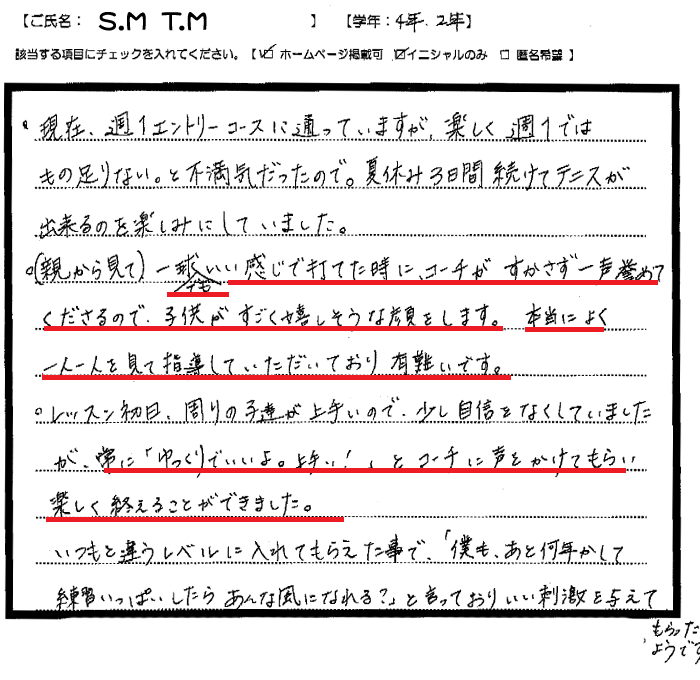 【ご氏名： S.M T.M 】 【学年：4年、2年】
該当する項目にチェックを入れてください。【 ☑ ホームページ掲載可 ☑イニシャルのみ □ 匿名希望 】
・現在、週1エントリーコースに通っていますが、楽しく週1では
もの足りない。と不満気だったので。夏休み3日間続けてテニスが
出来るのを楽しみにしていました。
○(親から見て) 一球でもいい感じで打てた時に、コーチがすかさず一声誉めて
くださるので、子供がすごく嬉しそうな顔をします。 本当によく
一人一人を見て指導していただいており有難いです。
○レッスン初日、周りの子達が上手いので、少し自信をなくしていました
が、常に「ゆっくりでいいよ。上手い！」とコーチに声をかけてもらい
楽しく終えることができました。
いつもと違うレベルに入れてもらえた事で、「僕も、あと何年かして
練習いっぱいしたらあんな風になれる？」と言っておりいい刺激を与えて
もらった
ようです